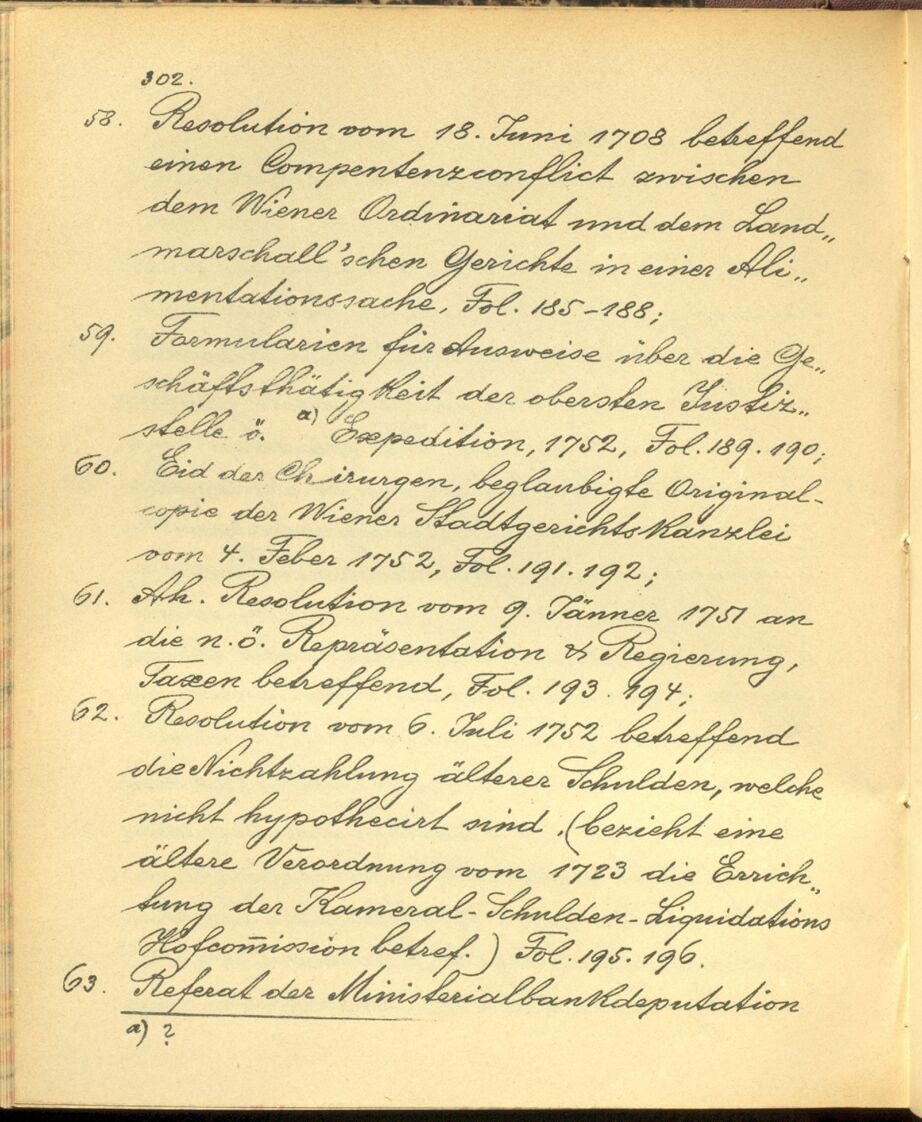 302.
58. Resolution vom 18. Juni 1708 betreffend
einen Compentenzconflict zwischen
dem Wiener Ordinariat und dem Land„
marschall'schen Gerichte in einer Ali„
mentationssache, Fol. 185-188;
59. Formularien für Ausweise über die Ge„
schäftsthätigkeit der obersten Justiz„
stelle ö. a) Expedition, 1752, Fol. 189. 190;
60. Eid der Chirurgen, beglaubigte Original-
copie der Wiener Stadtgerichtskanzlei
vom 4. Feber 1752, Fol. 191. 192;
61. Ah. Resolution vom 9. Jänner 1751 an
die n. ö. Repräsentation & Regierung,
Taxen betreffend, Fol. 193. 194;
62. Resolution vom 6. Juli 1752 betreffend
die Nichtzahlung älterer Schulden, welche
nicht hypothecirt sind. (bezieht eine
ältere Verordnung vom 1723 die Errich„
tung der Kameral-Schulden-Liquidations
Hofcom̅ission betref.) Fol. 195. 196.
63. Referat der Ministerialbankdeputation
a) ?